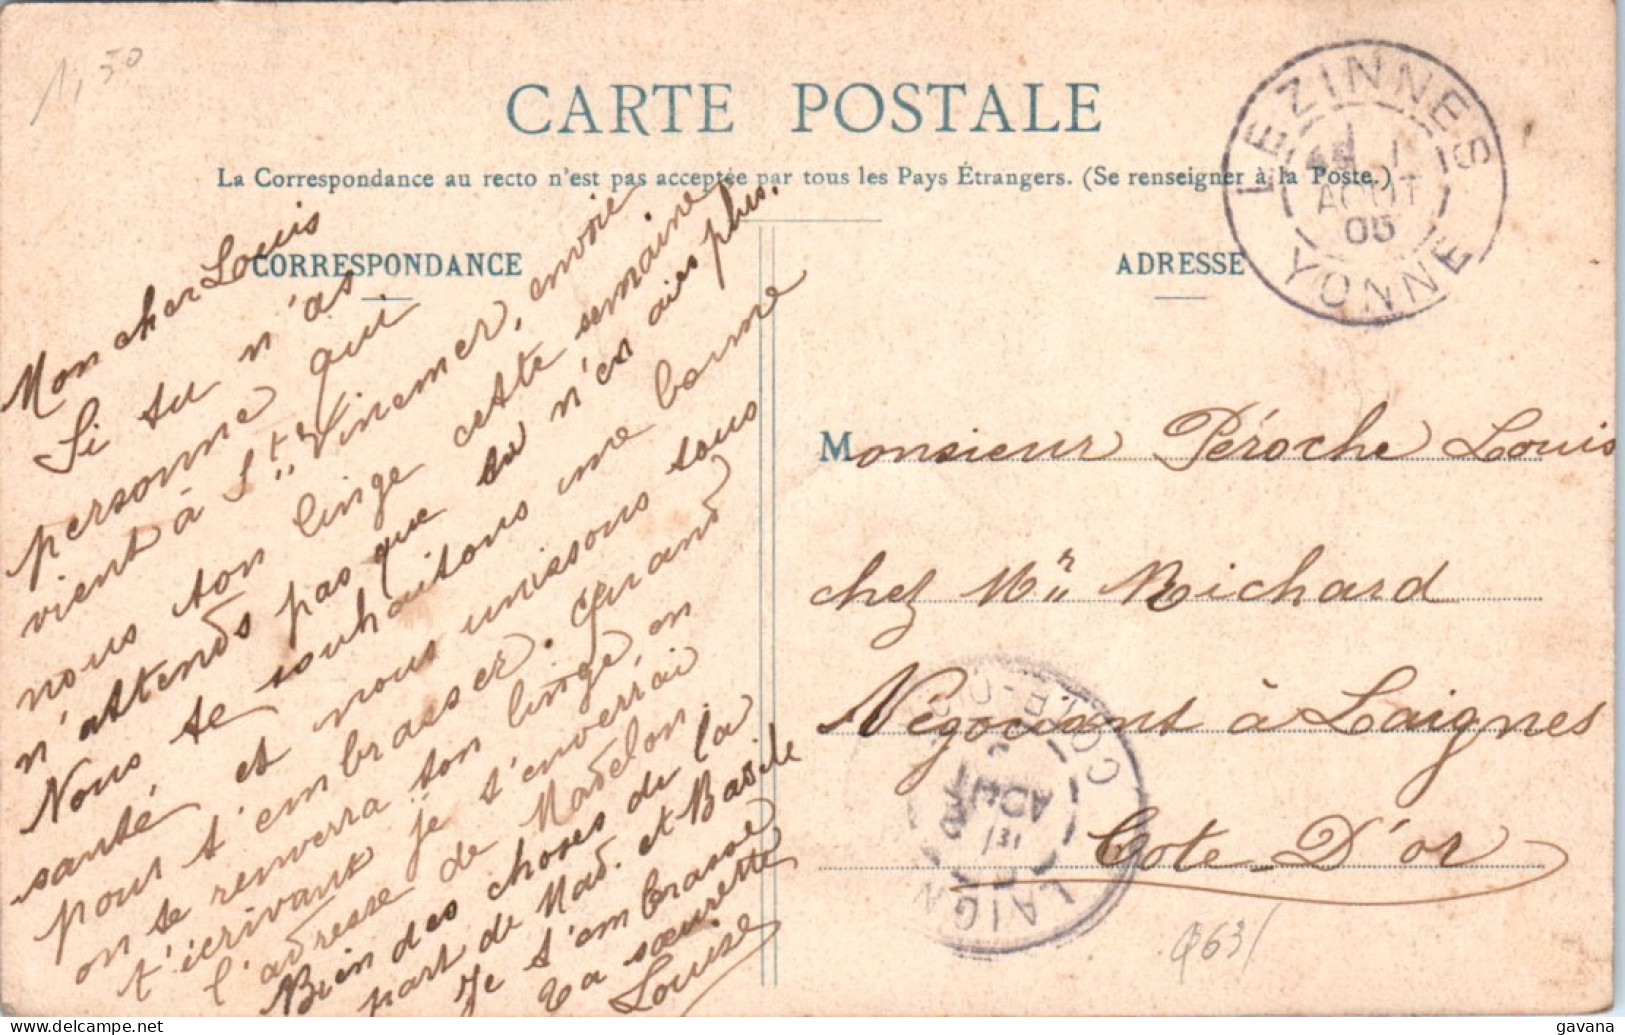 1,50
CARTE POSTALE
La Correspondance au recto n'est pas acceptée par tous les Pays Étrangers. (Se renseigner à la Poste.)
CORRESPONDANCE
ADRESSE
LEZINNES
AOUT
05
YONNE
Mon cher Louis
Si tu n'as
personne qui
vient à St Vinemer, envoie
nous ton linge cette semaine
n'attends pas que tu n'en aies plus.
Nous te souhaitons une bonne
santé et nous unissons tous
pour t'embrasser. Quand
on te renverra ton linge, en
t'écrivant je t'enverrai
l'adresse de Madelon.
Bien des choses de la
part de Mad. et Basile
Je t'embrasse
Ta sœurette
Louise
Monsieur Péroche Louis
chez Mr Richard
Négociant à Laignes
Cote D'or
LAIGN
AOUT
COTE-D'OR
Q63/
gavana